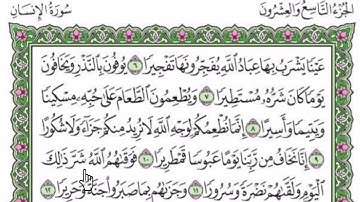 الجزء التاسع والعشرون سورة الإنسان
عَيْنًا يَشْرَبُ بِهَا عِبَادُ اللَّهِ يُفَجِّرُونَهَا تَفْجِيرًا ٦ يُوفُونَ بِالنَّذْرِ وَيَخَافُونَ
يَوْمًا كَانَ شَرُّهُ مُسْتَطِيرًا ٧ وَيُطْعِمُونَ الطَّعَامَ عَلَى حُبِّهِ مِسْكِينًا
وَيَتِيمًا وَأَسِيرًا ٨ إِنَّمَا نُطْعِمُكُمْ لِوَجْهِ اللَّهِ لَا نُرِيدُ مِنكُمْ جَزَاءً وَلَا شُكُورًا
٩ إِنَّا نَخَافُ مِن رَّبِّنَا يَوْمًا عَبُوسًا قَمْطَرِيرًا ١٠ فَوَقَاهُمُ اللَّهُ شَرَّ ذَلِكَ
الْيَوْمِ وَلَقَّاهُمْ نَضْرَةً وَسُرُورًا ١١ وَجَزَاهُم بِمَا صَبَرُوا جَنَّةً وَحَرِيرًا ١٢